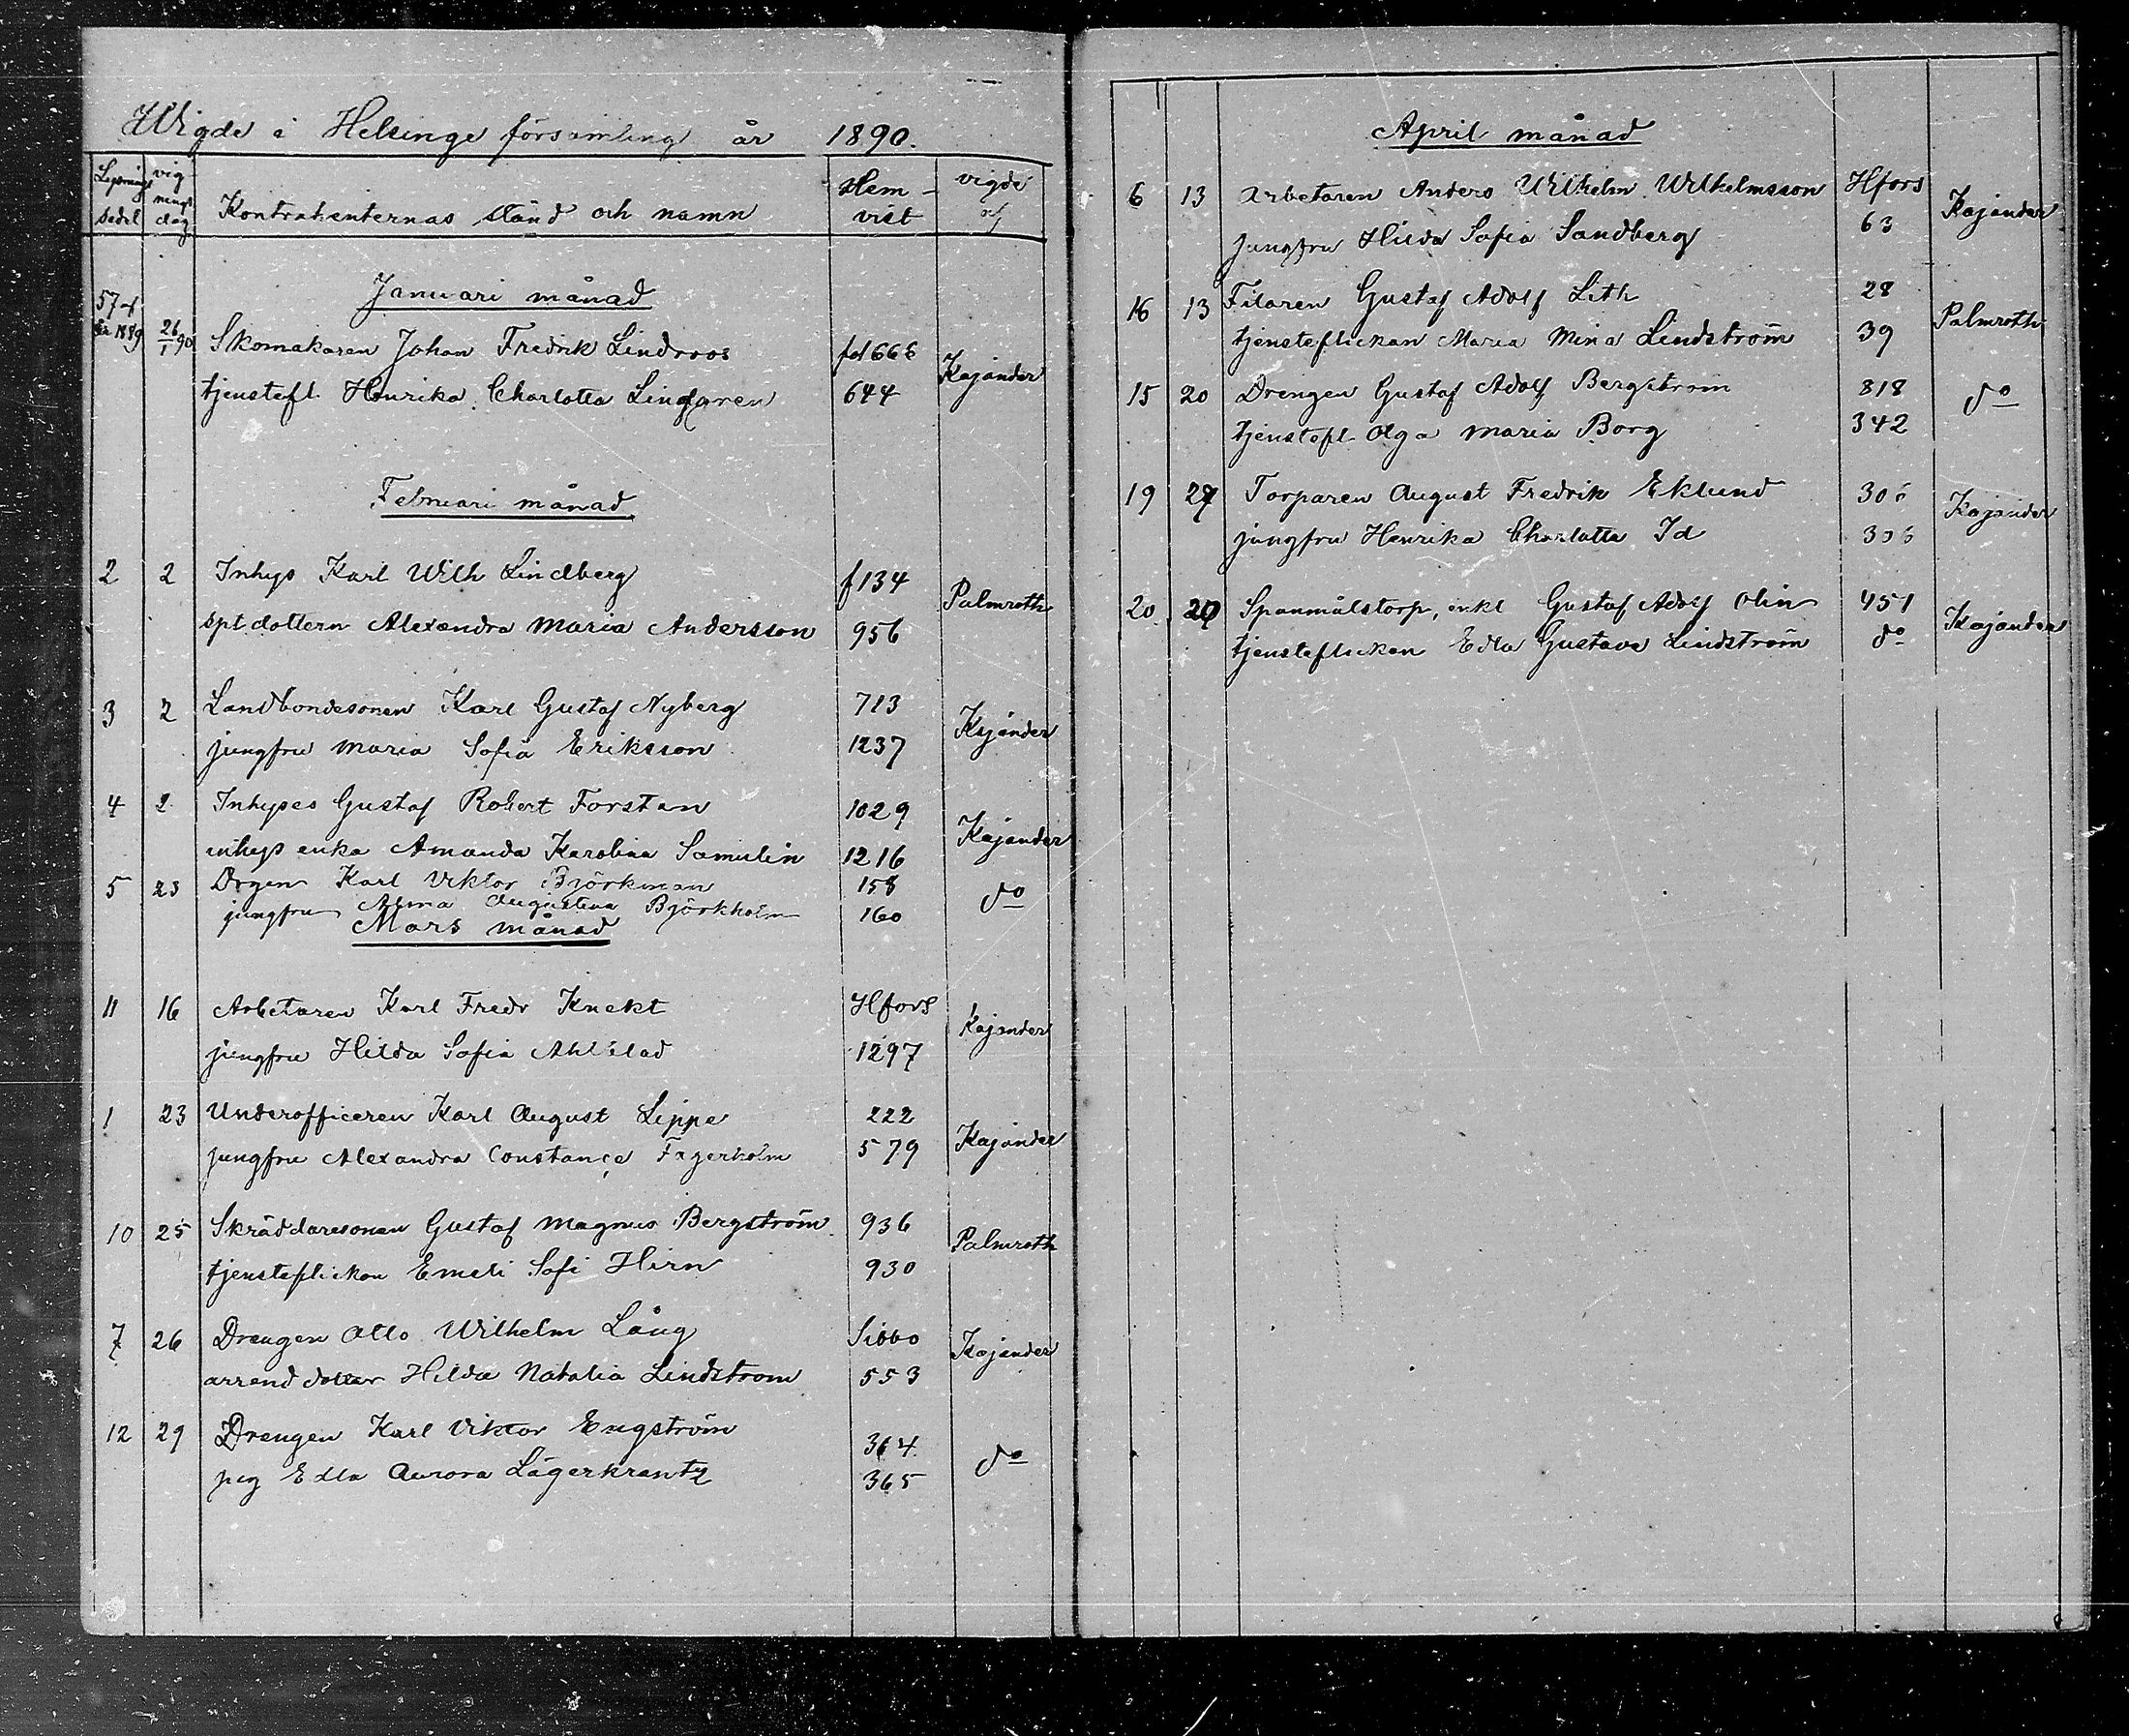 Wigde i Helsinge församling år 1890.
Lysnings sedel vig nings dag Kontrahenternas stånd och namn Hem- vist vigde af
Januari månad
57 af år 1889 26/1 90 Skomakaren Johan Fredrik Lindroos fol 666 Kajander
tjenstefl. Henrika Charlotta Lindgren 644
Februari månad
2 2 Inhys Karl Wilh Lindberg f 134 Palmroth
spt dottern Alexandra Maria Andersson 956
3 2 Landbondesonen Karl Gustaf Nyberg 713 Kajander
jungfru Maria Sofia Eriksson 1237
4 2 Inhyses Gustaf Robert Forstén 1029 Kajander
inhys enka Amanda Karolina Samulin 1216
5 23 Drgen Karl Viktor Björkman 158 do
jungfru Alma Augustina Björkholm 160
Mars månad
11 16 Arbetaren Karl Fredr Knekt Hfors Kajander
jungfru Hilda Sofia Ahlblad 1297
1 23 Underofficeren Karl August Lippe 222 Kajander
jungfru Alexandra Constance Fagerholm 579
10 25 Skräddaresonen Gustaf Magnus Bergström 936 Palmroth
tjensteflickan Emeli Sofi Hirn 930
7 26 Drengen Otto Wilhelm Lång Sibbo Kajander
arrend dotter Hilda Natalia Lindstrom 553
12 29 Drengen Karl Viktor Engström 364 do
pig Edla Aurora Lagerkrantz 365
April månad
6 13 Arbetaren Anders Wilhelm Wilhelmsson Hfors Kajander
jungfru Hilda Sofia Sandberg 63
16 13 Filaren Gustaf Adolf Lith 28 Palmroth
tjensteflickan Maria Mina Lindström 39
15 20 Drengen Gustaf Adolf Bergström 818 do
tjenstefl Olga Maria Borg 342
19 27 Torparen August Fredrik Eklund 306 Kajander
jungfru Henrika Charlotta Id 306
20 Spanmålstorp, enkl Gustaf Adolf Olin 451 Kajander
tjensteflickan Edla Gustava Lindström do